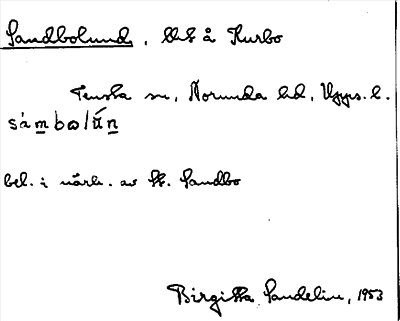 Sandbolund, bls å Kurbo
Tensta sn, Norunda hd, Upps. l.
sámbωlū́n
bel. i närh. av St. Sandbo
Birgitta Sandelin, 1953